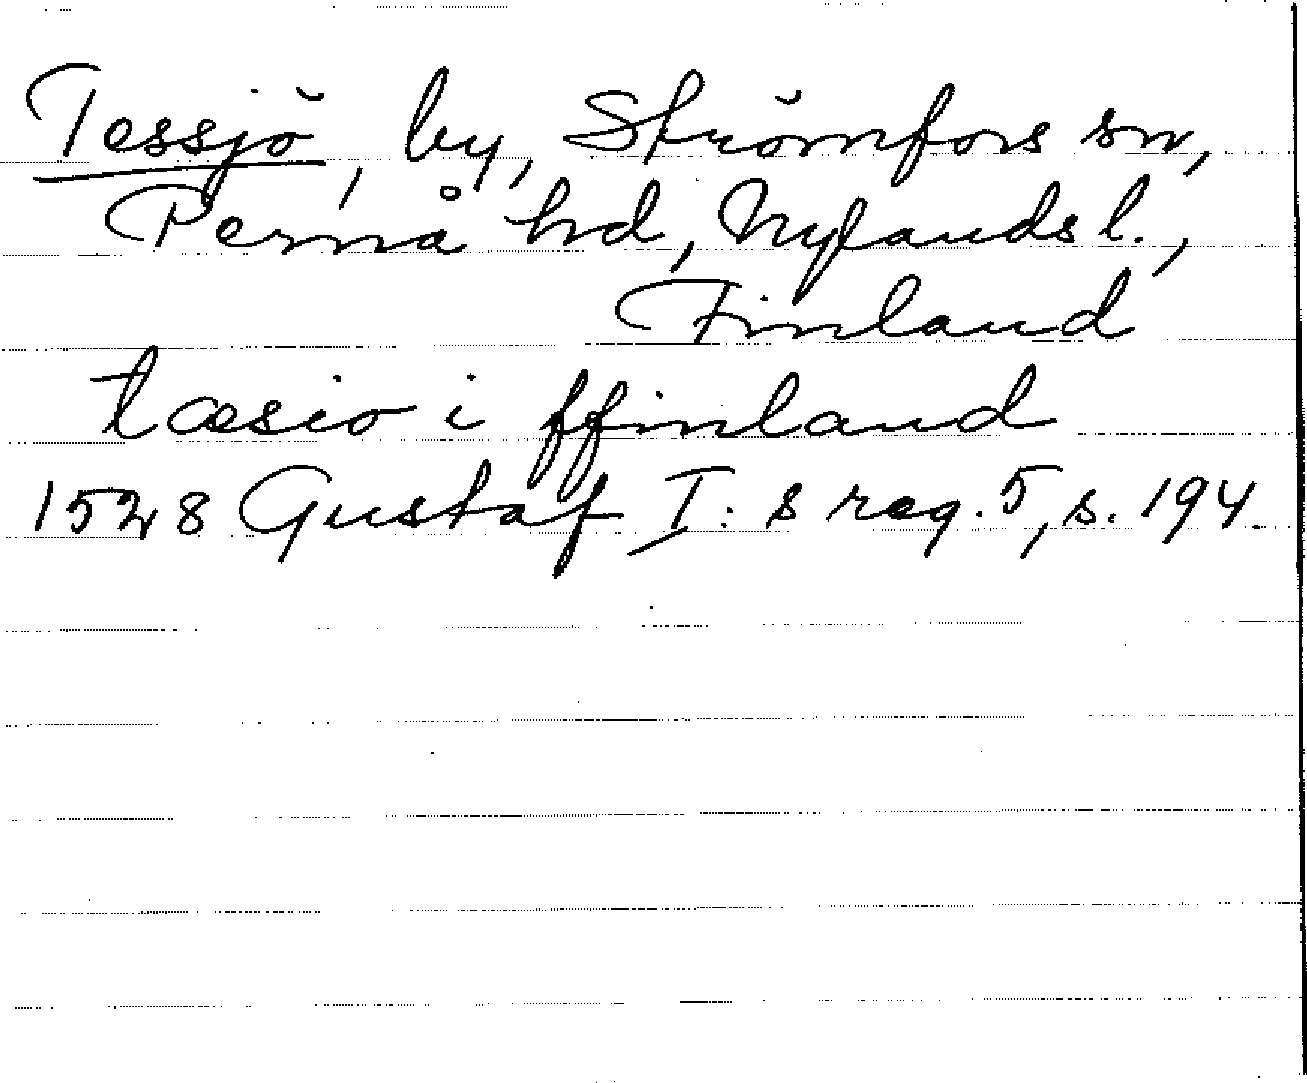 Tessjö, by, Strömfors sn,
Pernå hd, Nylands l.,
Finland
tæsio i ffinland
1528 Gustaf I:s reg. 5, s. 194